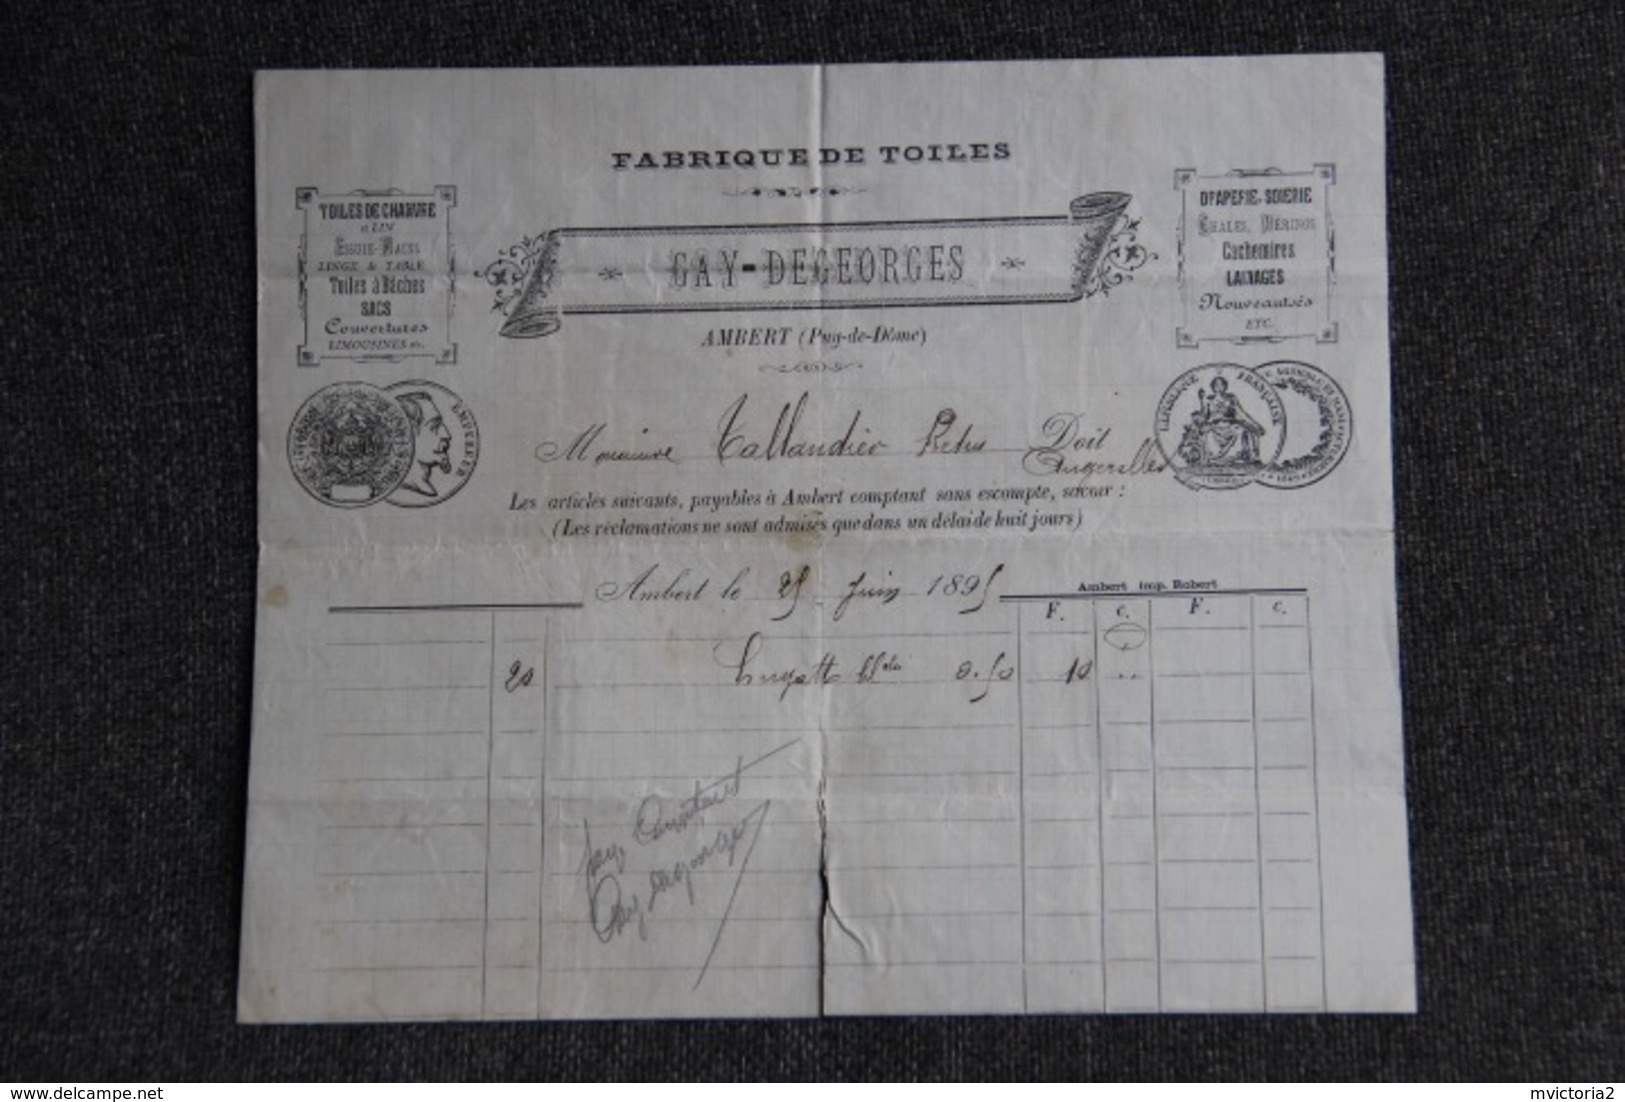 FABRIQUE DE TOILES
TOILES DE CHANVRE
& LIN
ESSUIE-MAINS
LINGE de TABLE
Toiles à Bâches
SACS
Couvertures
LIMOUSINES etc.
GAY-DEGEORGES
AMBERT (Puy-de-Dôme)
DRAPERIE, SOIERIE
CHALES, MÉRINOS
Cachemires
LAINAGES
Nouveautés
ETC.
EMPEREUR
REPUBLIQUE FRANÇAISE
Monsieur Tallandier Doit
Les articles suivants, payables à Ambert comptant sans escompte, savoir :
(Les réclamations ne sont admises que dans un délai de huit jours)
Ambert le 25 Juin 1895
Ambert imp. Robert
F. c. F. c.
20 0.50 10 ..
Comptant
Gay Degeorges
www.delcampe.net
mvictoria2